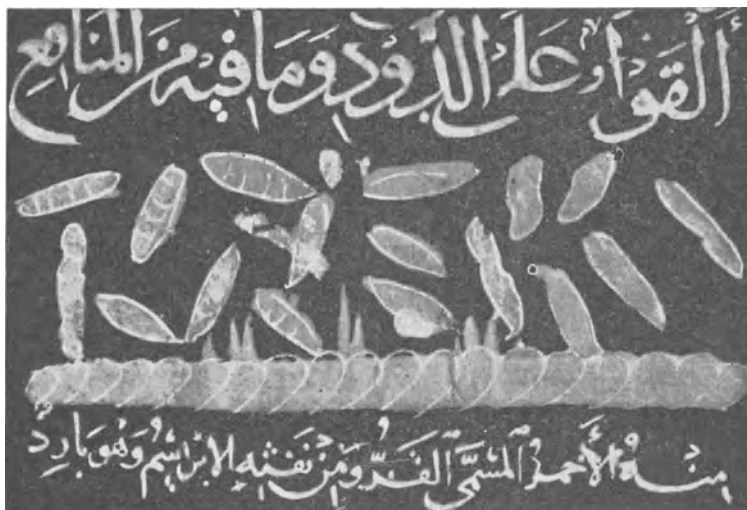 القول على الدود وما فيه من المنافع
منه الأحمر المسمى القز ومن نفثه الابريسم وهو بارد